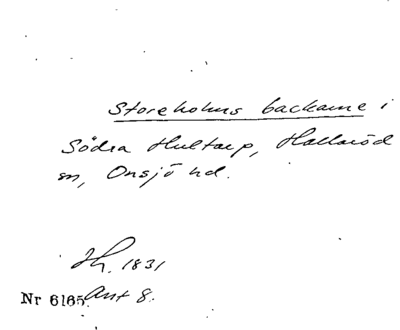 Storeholms backarne i
Södra Hultarp, Hallaröd
sn, Onsjö hd.
Th. 1831
Nr 6165. Ant 8.